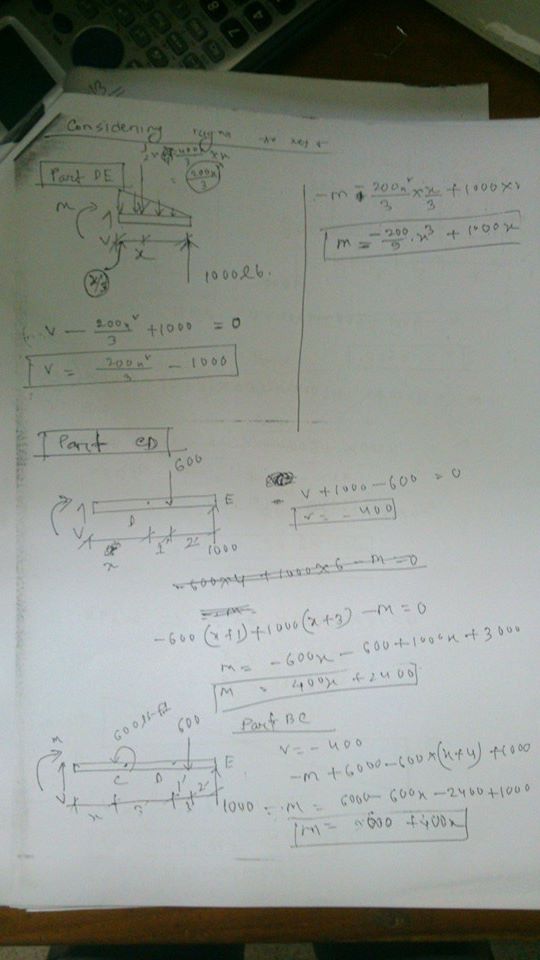 Considering
Part DE
200x²/3
M
V
x
x/3
1000 lb.
V - 200x²/3 + 1000 = 0
V = 200x²/3 - 1000
-M - 200x²/3 × x/3 + 1000 × x
M = -200/9 · x³ + 1000x
Part CD
600
V
D
E
x
1'
2'
1000
V + 1000 - 600 = 0
V = -400
-600×4 + 1000×6 - M = 0
-600(x+1) + 1000(x+3) - M = 0
M = -600x - 600 + 1000x + 3000
M = 400x + 2400
Part BC
M
600 lb-ft
600
V
C
D
E
x
3'
1'
2'
1000
V = -400
-M + 6000 - 600×(x+4) + 1000
M = 6000 - 600x - 2400 + 1000
+400x